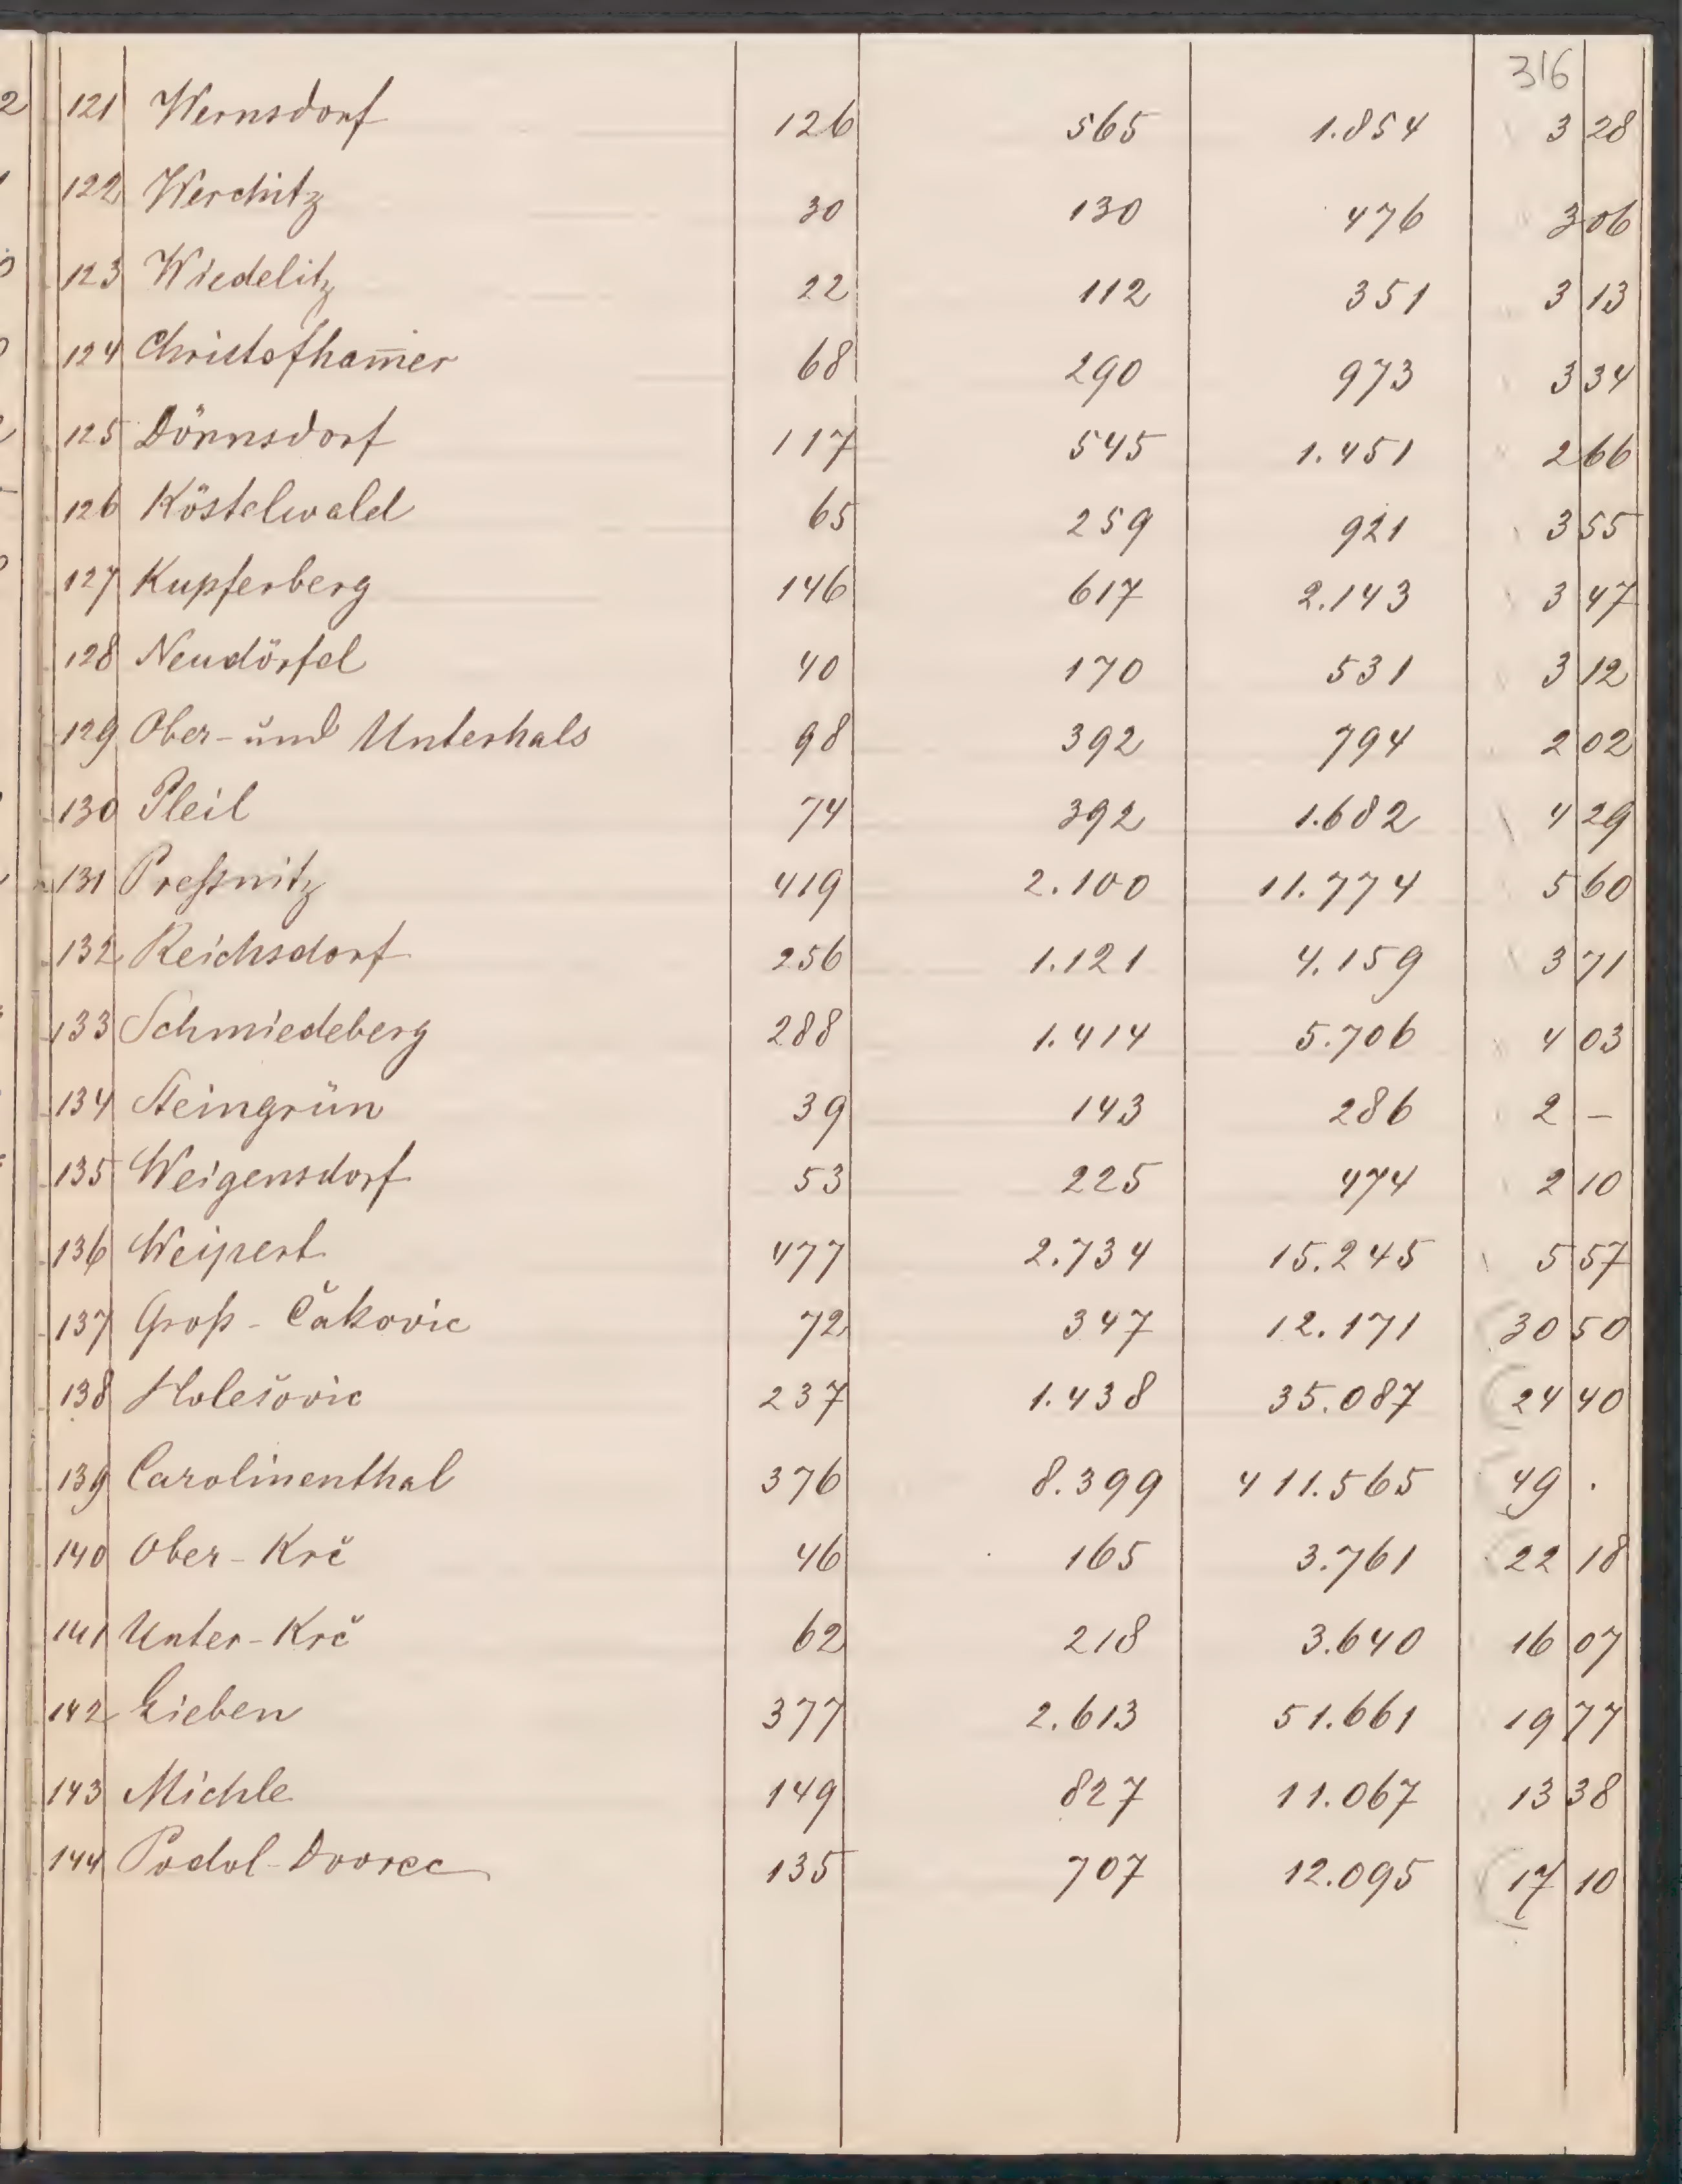 316
121 Wernsdorf 126 565 1.854 3 28
122 Werchitz 30 130 476 3 06
123 Wiedelitz 22 112 351 3 13
124 Christofham̄er 68 290 973 3 34
125 Dörnsdorf 117 545 1.451 2 66
126 Köstelwald 65 259 921 3 55
127 Kupferberg 146 617 2.143 3 47
128 Neudörfel 40 170 531 3 12
129 Ober-und Unterhals 98 392 794 2 02
130 Pleil 74 392 1.682 4 29
131 Preßnitz 419 2.100 11.774 5 60
132 Reichsdorf 256 1.121 4.159 3 71
133 Schmiedeberg 288 1.414 5.706 4 03
134 Steingrün 39 143 286 2 –
135 Weigensdorf 53 225 474 2 10
136 Weipert 477 2.734 15.245 5 57
137 Groß-Čakovic 72 347 12.171 30 50
138 Holešovic 237 1.438 35.087 24 40
139 Carolinenthal 376 8.399 411.565 49 .
140 Ober-Krč 46 165 3.761 22 18
141 Unter-Krč 62 218 3.640 16 07
142 Lieben 377 2.613 51.661 19 77
143 Michle 149 827 11.067 13 38
144 Podol-Dvorec 135 707 12.095 17 10